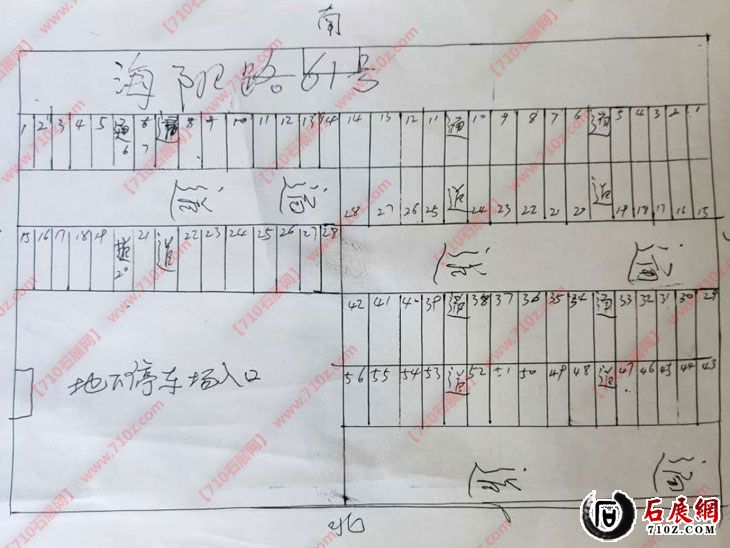 南
海阳路61号
1 2 3 4 5 通 6 通 8 9 10 11 12 13 14
6 7
14 13 12 11 通 10 9 8 7 6 通 5 4 3 2 1
28 27 26 25 道 24 23 22 21 20 道 19 18 17 16 15
通 道
15 16 17 18 19 20 21 道 22 23 24 25 26 27 28
通 道
42 41 40 39 通 38 37 36 35 34 通 33 32 31 30 29
56 55 54 53 道 52 51 50 49 48 道 47 46 45 44 43
地下停车场入口
通 道
北
【710石展网】 www.710z.com
石展網
710Z.COM